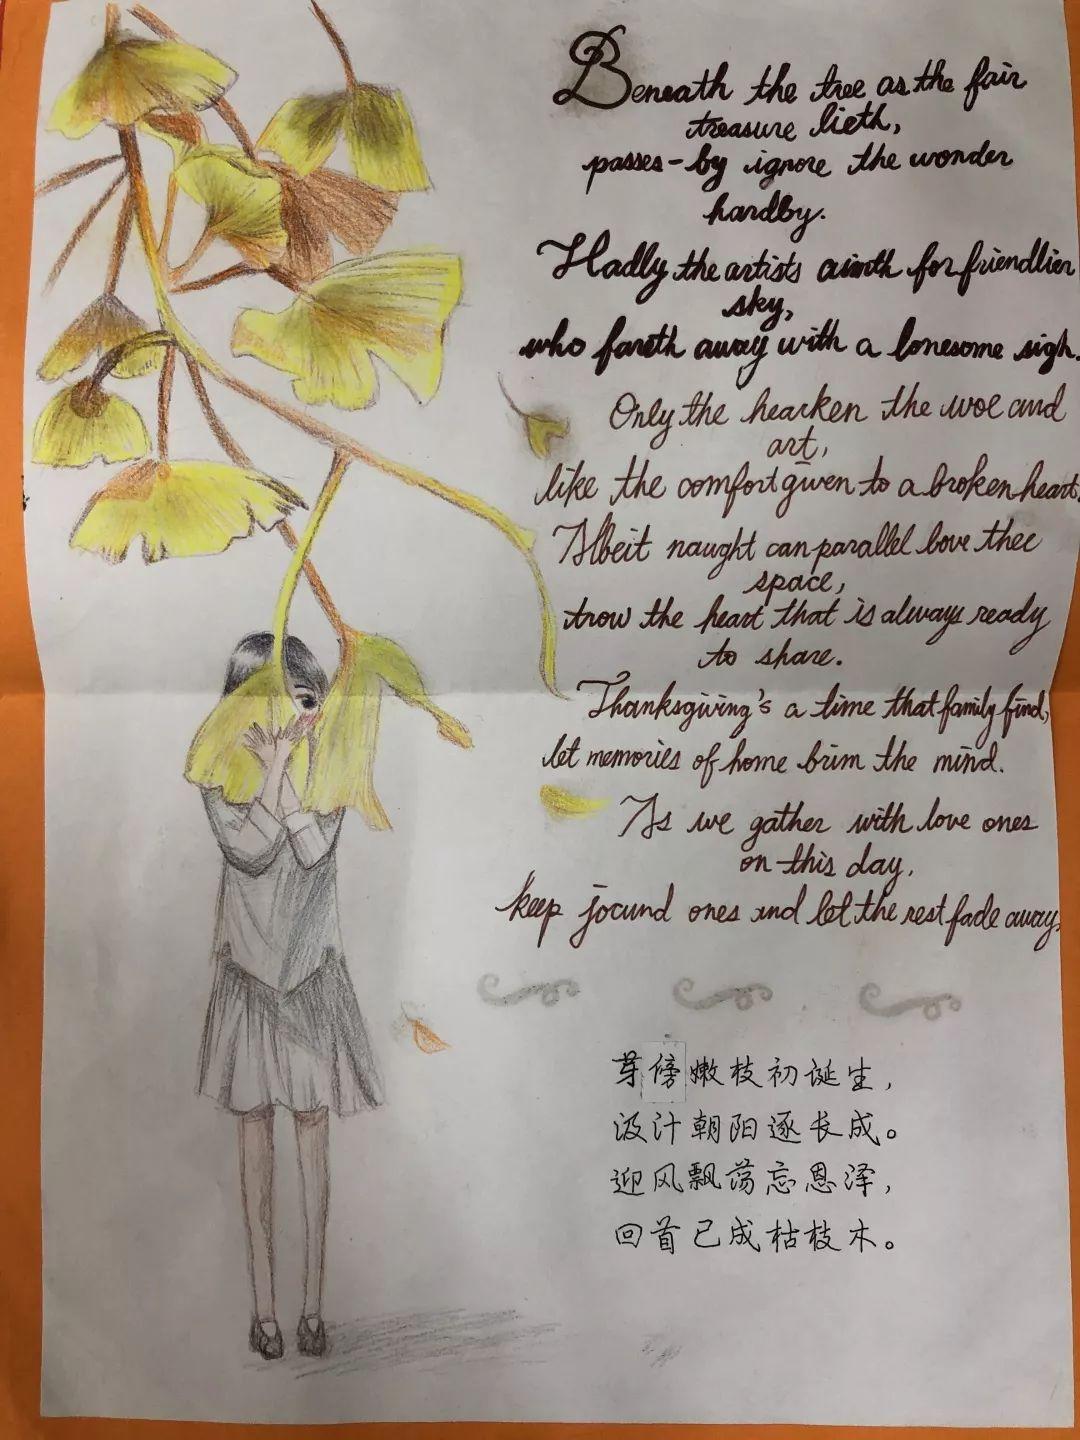 Beneath the tree as the fair
treasure lieth,
passes-by ignore the wonder
hardby.
Hadly the artists aimth for friendlier
sky,
who fareth away with a lonesome sigh.
Only the hearken the woe and
art,
like the comfort given to a broken heart.
Albeit naught can parallel love thee
space,
trow the heart that is always ready
to share.
Thanksgiving's a time that family find,
let memories of home brim the mind.
As we gather with love ones
on this day,
keep jocund ones and let the rest fade away.
芽傍嫩枝初诞生，
汲汁朝阳逐长成。
迎风飘荡忘恩泽，
回首已成枯枝木。